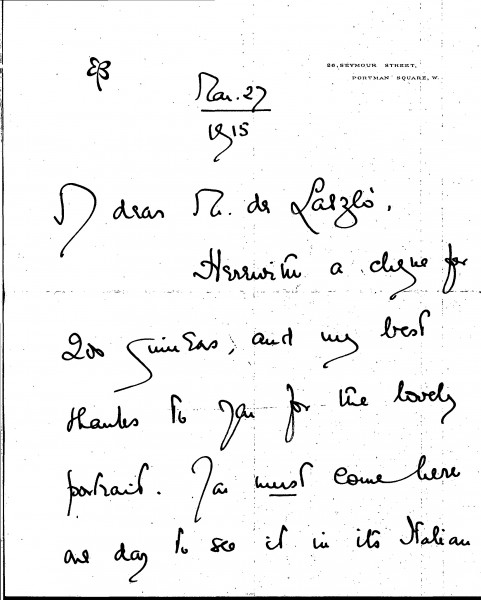 26, SEYMOUR STREET,
PORTMAN SQUARE, W.
Mar. 27
1915
Dear Mr. de László,
Herewith a cheque for
200 guineas, and my best
thanks to you for the lovely
portrait. You must come here
one day to see it in its Italian